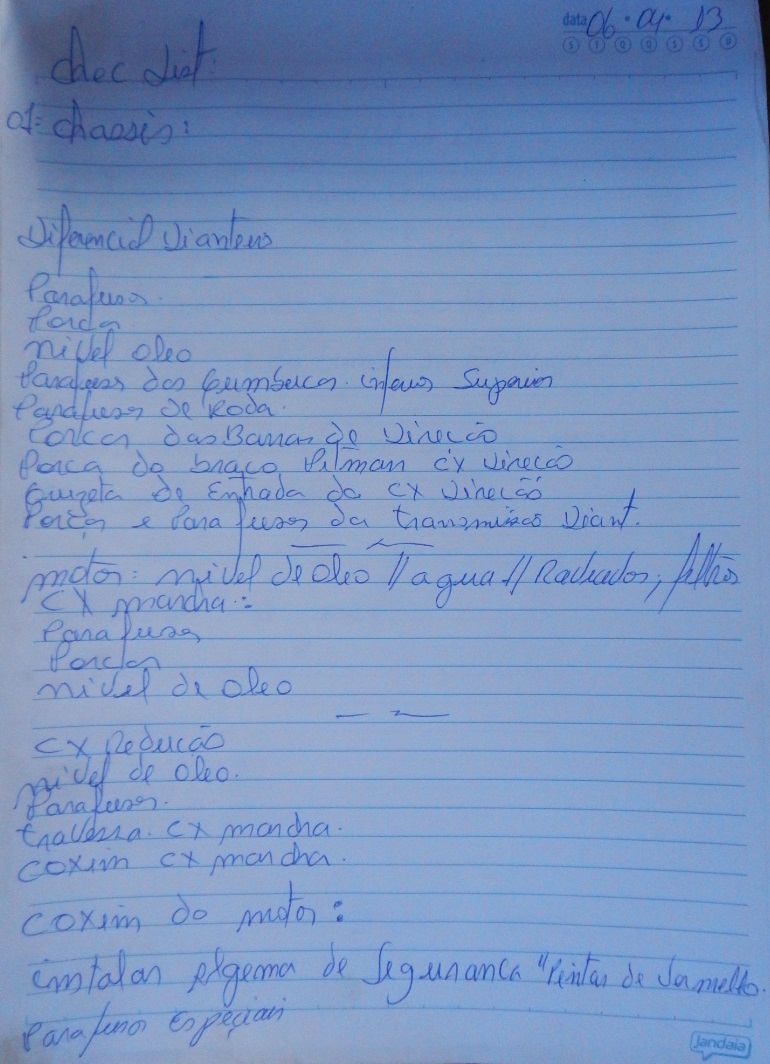 data 06 · 04 · 13
S T Q Q S S D
Chec List:
01= chassis:
Diferencial Dianteiro
Parafusos.
Porcas
nivel oleo
Parafusos dos Superior
Parafusos de Roda.
Porcas das Barras de Direção
Porca do braço Pitman cx Direção
Cruzeta de Entrada da cx Direção
Porcas e Parafusos da transmissão Diant.
motor: nivel de oleo // agua // Radiador, filtros
CX marcha:
Parafusos
Porcas
nivel de oleo
CX Redução
nivel de oleo.
Parafusos.
travessa. CX marcha.
coxim cx marcha.
coxim do motor:
instalar Algema de Segurança "Pintar de Vermelho.
Parafusos Especiais
Jandaia